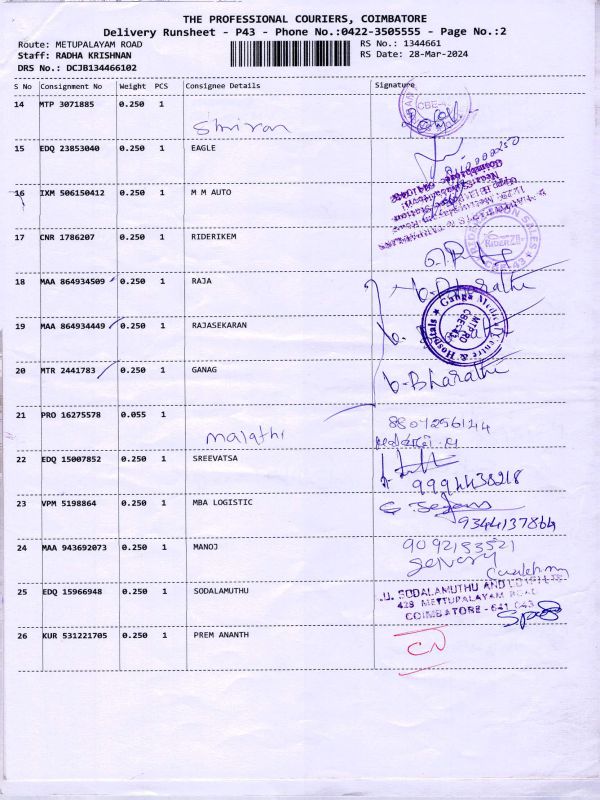 THE PROFESSIONAL COURIERS, COIMBATORE
Delivery Runsheet - P43 - Phone No.:0422-3505555 - Page No.:2
Route: METUPALAYAM ROAD RS No.: 1344661
Staff: RADHA KRISHNAN RS Date: 28-Mar-2024
DRS No.: DCJB134466102
S No Consignment No Weight PCS Consignee Details Signature
14 MTP 3071885 0.250 1
Shriran
15 EDQ 23853040 0.250 1 EAGLE
16 IXM 506150412 0.250 1 M M AUTO
17 CNR 1786207 0.250 1 RIDERIKEM
18 MAA 864934509 0.250 1 RAJA b-Bharathi
19 MAA 864934449 0.250 1 RAJASEKARAN
Ganga Medical Centre & Hospitals
MTP RD
CBE-43
20 MTR 2441783 0.250 1 GANAG
b-Bharathi
21 PRO 16275578 0.055 1
malathi
22 EDQ 15007852 0.250 1 SREEVATSA
9994438218
23 VPM 5198864 0.250 1 MBA LOGISTIC
9344137864
24 MAA 943692073 0.250 1 MANOJ
25 EDQ 15966948 0.250 1 SODALAMUTHU
.U. SODALAMUTHU AND CO
428 METTUPALAYAM ROAD
COIMBATORE - 641 043
26 KUR 531221705 0.250 1 PREM ANANTH
CN